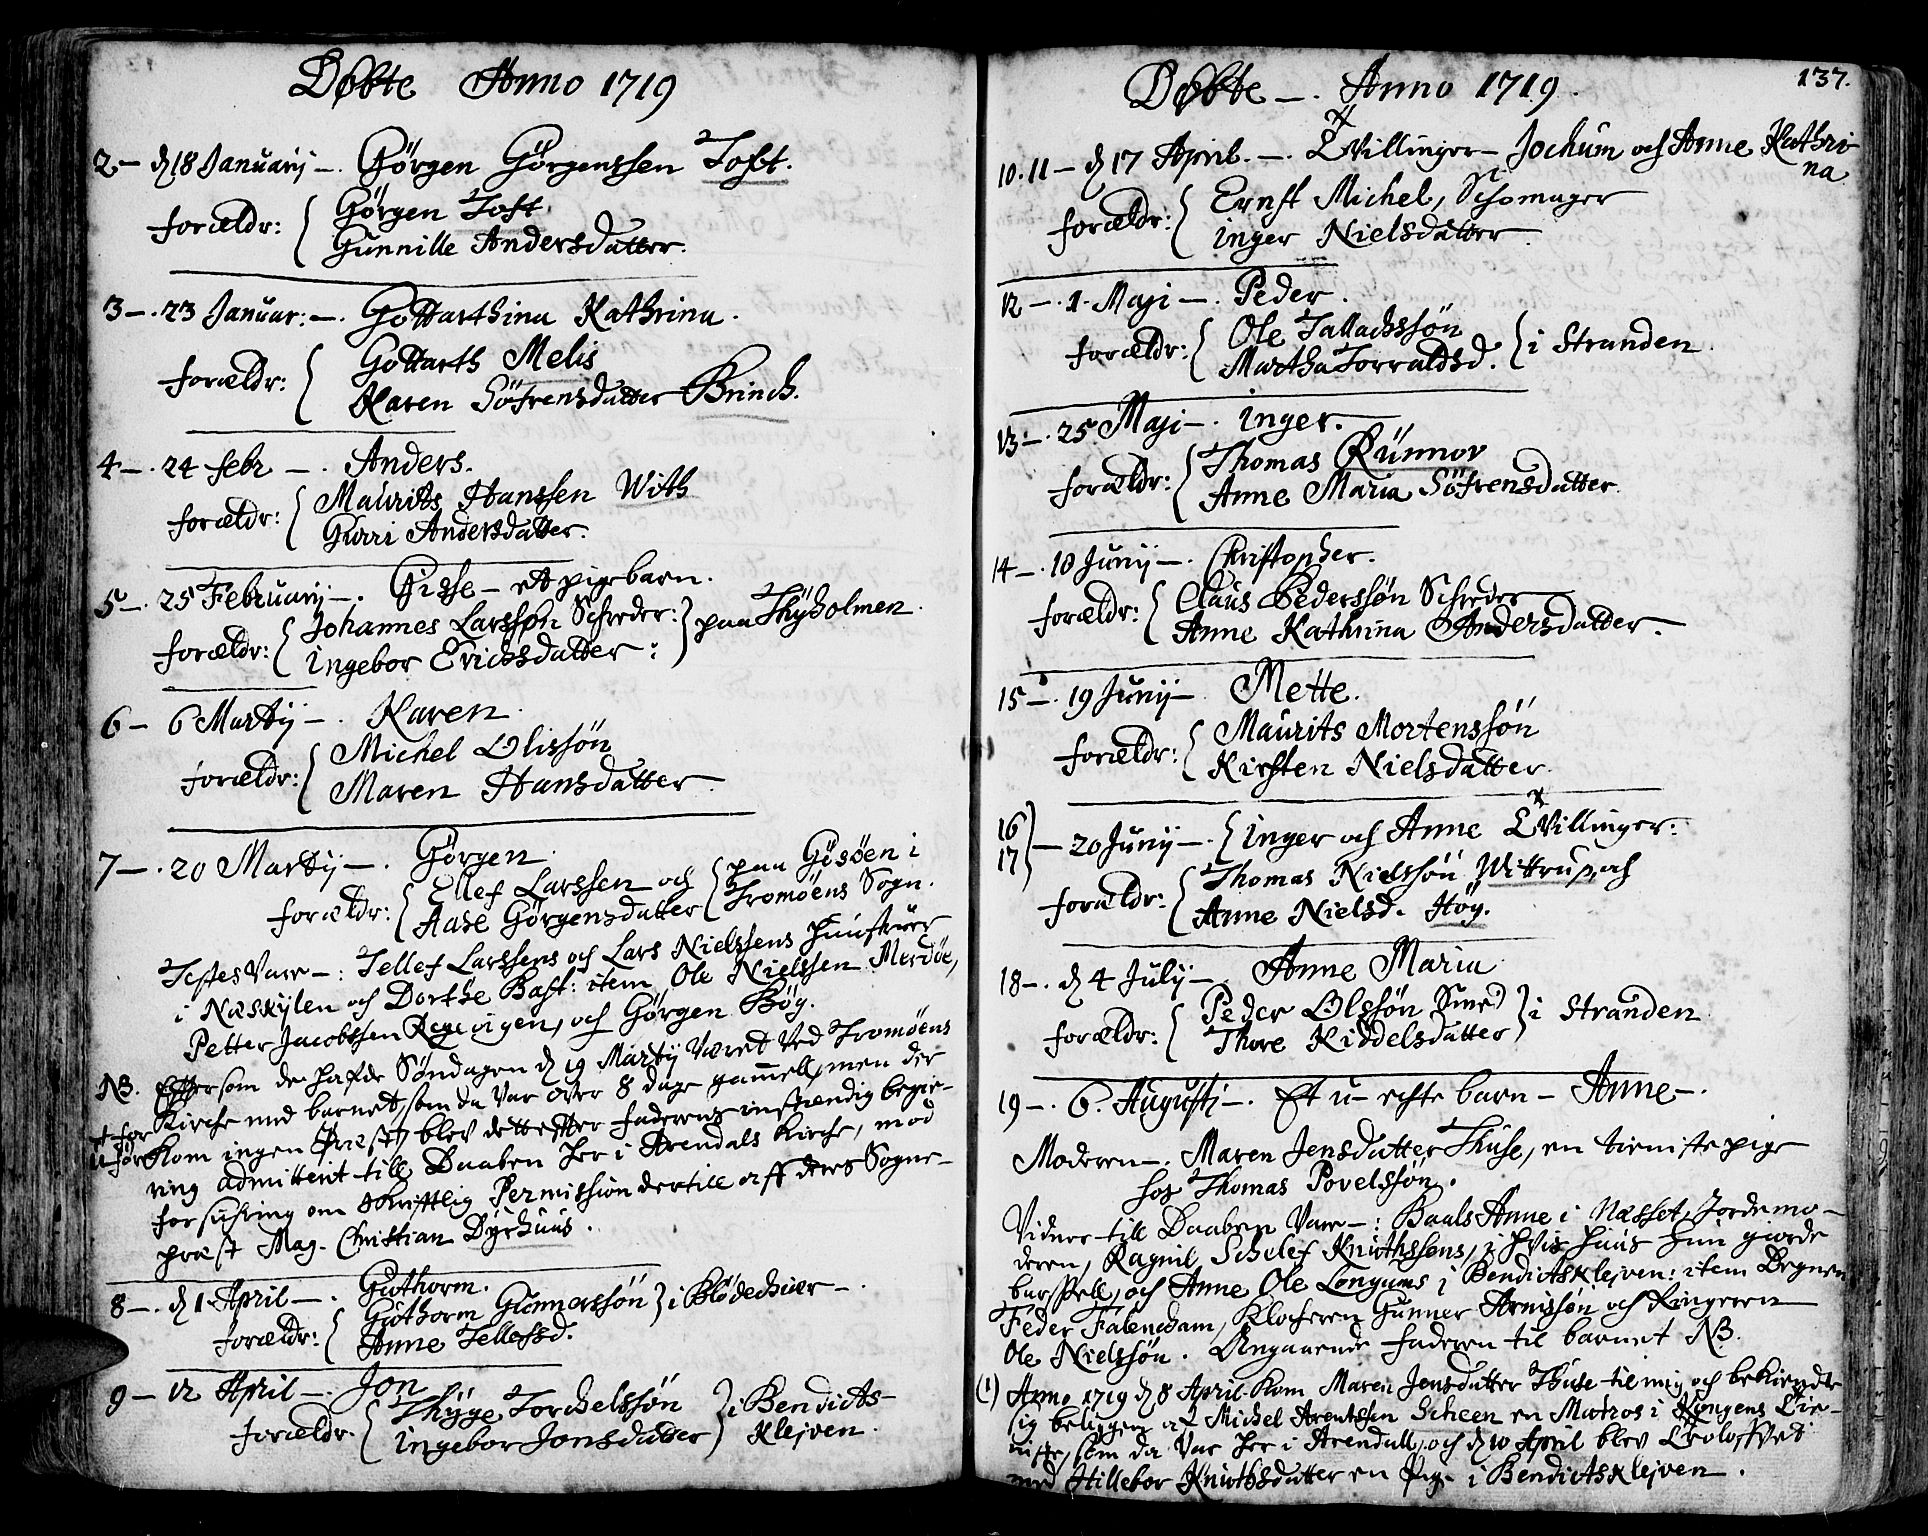 Døbte Anno 1719
2 – d 18 Januarij –. Gørgen Gørgenssen Toft.
forældr: { Gørgen Toft
Gunnille Andersdatter.
3 –. 23 Januar: –. Gottarthina Kathrina.
forældr: { Gottarth Melis
Karen Söfrensdatter Brinch.
4 –. 24 febr –. Anders.
forældr: { Maurits Hanssen With
Gurri Andersdatter.
5 –. 25 Februarij –. Gisse – et pigebarn.
forældr: { Johannes Larssøn Schreder: } paa Thÿholmen.
Ingebor Erichsdatter:
6 – 6 Martij –. Karen.
forældr: { Michel Olissön
Maren Hansdatter.
7 –. 20 Martij –. Gørgen.
forældr: { Ellef Larssen och { paa Gösöen i
Aase Gørgensdatter { Tromöens Sogn.
Testes Vare –: Tellef Larssens och Lars Nielssens Hustruer
i Næskilen och Dorthe Bast: item Ole Nielssen Merdöe,
Petter Jacobssen Regevigen, och Gørgen Bög.
NB. Eftersom de hafde Søndagen d 19 Martij Været Ved Tromöens
Kirche med barnet, som da Var over 8 dage gammell, men der
kom ingen Præst, blev dette efter Faderens instændig begie-
ring admitterit till Daaben her i Arendals Kirche, mod
forsichring om skriftlig Permission dertill aff deres Sogne-
præst Mag. Christian Dyrhuus.
8 –. d 1 April –. Guthorm.
forældr: { Guthorm Gunnerssön } i Blödechiær –.
Anne Tellefsd.
9 – 12 April –. Jon
forældr. { Thÿge Torchelssön } i Bendicts-
Ingebor Jonsdatter } Klejven.
Døbte –. Anno 1719.
137.
10. 11 – d 17 April. –. Tvillinger – Jochum och Anne Kathri-
na
forældr: { Ernst Michel, Schomager
Inger Nielsdatter.
12 –. 1. Maji –. Peder.
forældr: { Ole Tallachssön } i Stranden.
Martha Torvaldsd.
13 –. 25 Maji –. Inger.
forældr: { Thomas Rünnov
Anne Maria Söfrensdatter.
14 –. 18 Junij –. Christopher.
forældr: { Claus Pederssön Schreder
Anne Kathrina Andersdatter.
15 –. 19 Junij –. Mette.
forældr: { Maurits Mortenssön
Kirsten Nielsdatter.
16
17 } – 20 Junij –. { Inger och Anne Tvillinger:
forældr: { Thomas Nielssön Wittrup, och
Anne Nielsd. Höy.
18 –. d 4 Julij – Anne Maria
forældr: { Peder Olssön Smed } i Stranden
Thore Kiddelsdatter
19 –. 6. Augusti –. Et u-echte barn – Anne –.
Moderen –. Maren Jensdatter Thuse, en tieniste pige
hos Thomas Povelssön.
Vidner till Daaben Vare –: Baals Anne i Næsset, Jordemo-
deren, Ragnil Schelef Knuthssens, i hvis huus hun giorde
barssell, och Anne Ole Longums i Bendictsklejven: item Degnen
Peder Falenctham, Klocheren Gunner Arnissön och Ringeren
Ole Nielssön. Angaaende Faderen til barnet NB.
(1) Anno 1719 d 8 April kom Maren Jensdatter Thuse til mig och bekiendte
sig beligget af Michel Arentssen Scheen en Matros i Kongens Tie-
niste, som da Var her i Arendall, och d 10 April blev Trolofvet
med Hillebor Knuthsdatter en Pige i Bendictsklejven.